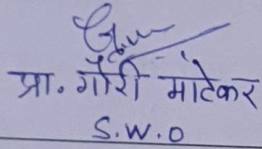 प्रा. गौरी माटेकर
S.W.O